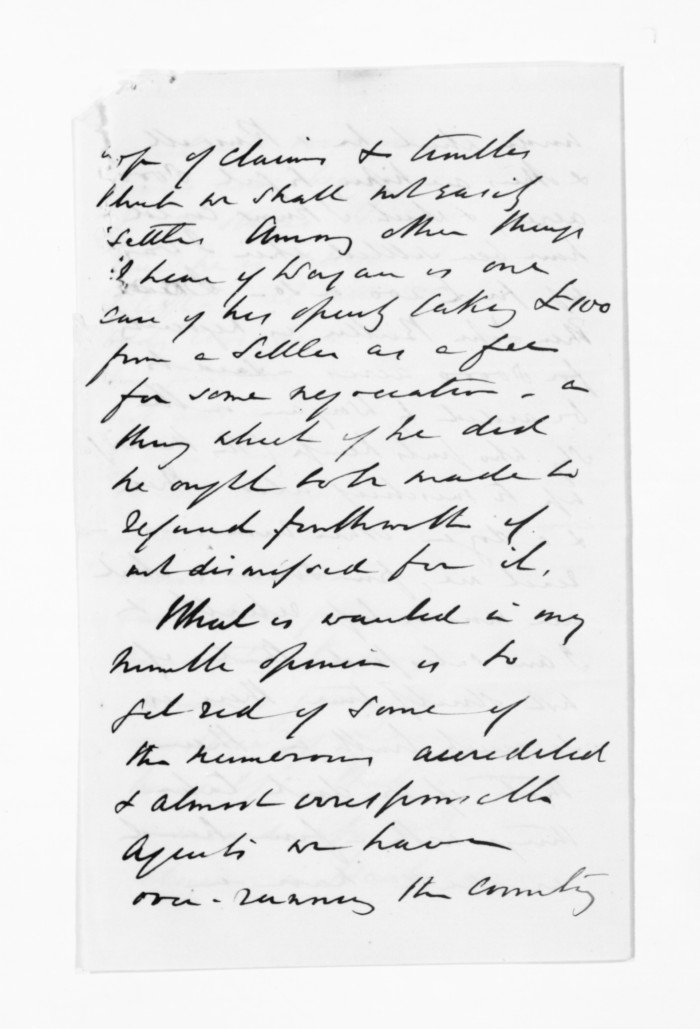 crop of claims & troubles
which we shall not easily
settle. Among other things
I hear of Wogan is one
case of his openly taking £100
from a settler as a fee
for some negociation - a
thing which if he did
he ought to be made to
refund forthwith if
not dismissed for it.
What is wanted in my
humble opinion is to
get rid of some of
the numerous accredited
& almost irresponsible
Agents we have
over-running the country